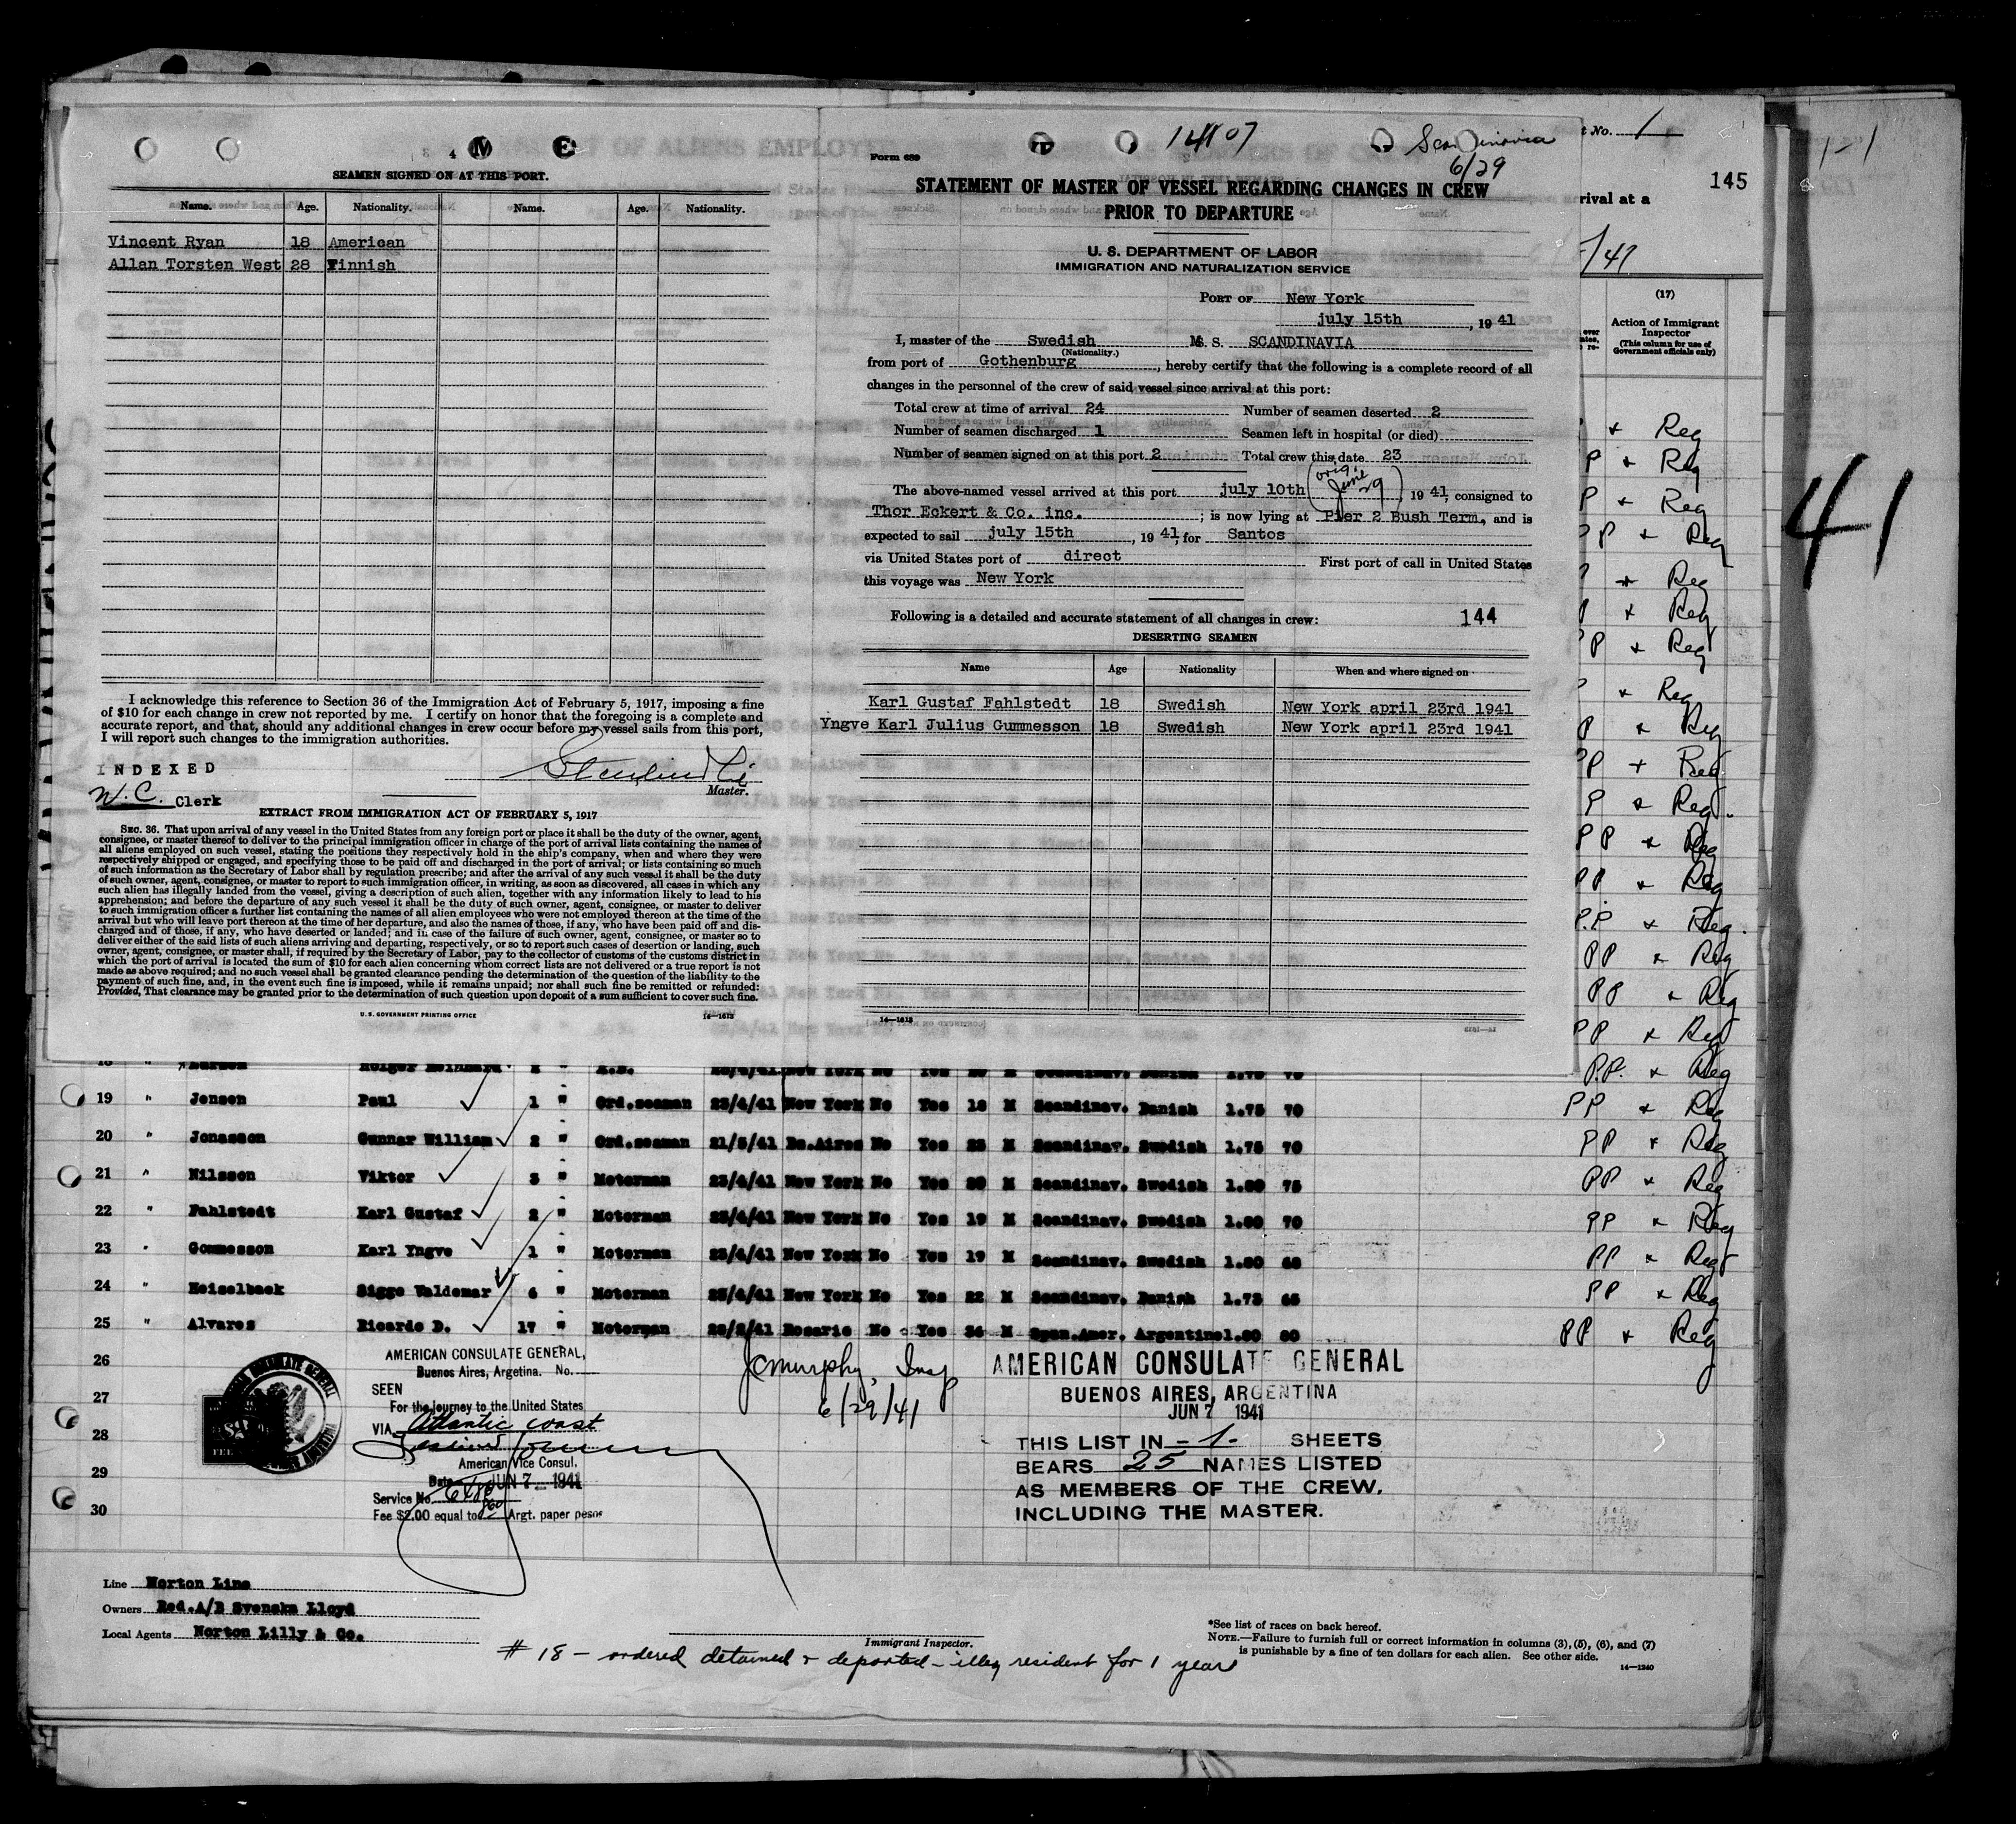 SEAMEN SIGNED ON AT THIS PORT.
Name. Age. Nationality. Name. Age. Nationality.
Vincent Ryan 18 American
Allan Torsten West 28 Finnish
I acknowledge this reference to Section 36 of the Immigration Act of February 5, 1917, imposing a fine
of $10 for each change in crew not reported by me. I certify on honor that the foregoing is a complete and
accurate report, and that, should any additional changes in crew occur before my vessel sails from this port,
I will report such changes to the immigration authorities.
INDEXED
W.C. Clerk
Master.
EXTRACT FROM IMMIGRATION ACT OF FEBRUARY 5, 1917
SEC. 36. That upon arrival of any vessel in the United States from any foreign port or place it shall be the duty of the owner, agent,
consignee, or master thereof to deliver to the principal immigration officer in charge of the port of arrival lists containing the names of
all aliens employed on such vessel, stating the positions they respectively hold in the ship's company, when and where they were
respectively shipped or engaged, and specifying those to be paid off and discharged in the port of arrival; or lists containing so much
of such information as the Secretary of Labor shall by regulation prescribe; and after the arrival of any such vessel it shall be the duty
of such owner, agent, consignee, or master to report to such immigration officer, in writing, as soon as discovered, all cases in which any
such alien has illegally landed from the vessel, giving a description of such alien, together with any information likely to lead to his
apprehension; and before the departure of any such vessel it shall be the duty of such owner, agent, consignee, or master to deliver
to such immigration officer a further list containing the names of all alien employees who were not employed thereon at the time of the
arrival but who will leave port thereon at the time of her departure, and also the names of those, if any, who have been paid off and dis-
charged and of those, if any, who have deserted or landed; and in case of the failure of such owner, agent, consignee, or master so to
deliver either of the said lists of such aliens arriving and departing, respectively, or so to report such cases of desertion or landing, such
owner, agent, consignee, or master shall, if required by the Secretary of Labor, pay to the collector of customs of the customs district in
which the port of arrival is located the sum of $10 for each alien concerning whom correct lists are not delivered or a true report is not
made as above required; and no such vessel shall be granted clearance pending the determination of the question of the liability to the
payment of such fine, and, in the event such fine is imposed, while it remains unpaid; nor shall such fine be remitted or refunded:
Provided, That clearance may be granted prior to the determination of such question upon deposit of a sum sufficient to cover such fine.
U.S. GOVERNMENT PRINTING OFFICE 14—1613
Form 689
Scandinavia
6/29
STATEMENT OF MASTER OF VESSEL REGARDING CHANGES IN CREW
PRIOR TO DEPARTURE
U. S. DEPARTMENT OF LABOR
IMMIGRATION AND NATURALIZATION SERVICE
PORT OF New York
july 15th, 1941
I, master of the Swedish M. S. SCANDINAVIA
(Nationality.)
from port of Gothenburg, hereby certify that the following is a complete record of all
changes in the personnel of the crew of said vessel since arrival at this port:
Total crew at time of arrival 24 Number of seamen deserted 2
Number of seamen discharged 1 Seamen left in hospital (or died)
Number of seamen signed on at this port 2 Total crew this date 23
The above-named vessel arrived at this port july 10th (orig. June 29) 1941, consigned to
Thor Eckert & Co. inc. ; is now lying at Pier 2 Bush Term. and is
expected to sail july 15th, 1941, for Santos
via United States port of direct First port of call in United States
this voyage was New York
Following is a detailed and accurate statement of all changes in crew: 144
DESERTING SEAMEN
Name Age Nationality When and where signed on
Karl Gustaf Fahlstedt 18 Swedish New York april 23rd 1941
Yngve Karl Julius Gummesson 18 Swedish New York april 23rd 1941
14—1613
No. 1
145
rival at a
/41
(17)
Action of Immigrant
Inspector
(This column for use of
Government officials only)
41
P + Reg
P + Reg
PP + Reg
+ Reg
P + Reg
19 " Jensen Paul 1 " Ord.seaman 23/4/41 New York No Yes 18 M Scandinav. Danish 1.75 70 PP + Reg
20 " Jonasson Gunnar William 2 " Ord.seaman 21/5/41 Bs.Aires No Yes 23 M Scandinav. Swedish 1.75 70 PP + Reg
21 " Nilsson Viktor 3 " Motorman 23/4/41 New York No Yes 20 M Scandinav. Swedish 1.80 75 PP + Reg
22 " Fahlstedt Karl Gustaf 2 " Motorman 23/4/41 New York No Yes 19 M Scandinav. Swedish 1.80 70 PP + Reg
23 " Gommesson Karl Yngve 1 " Motorman 23/4/41 New York No Yes 19 M Scandinav. Swedish 1.80 68 PP + Reg
24 " Heiselback Siggo Valdemar 6 " Motorman 23/4/41 New York No Yes 22 M Scandinav. Danish 1.73 65 PP + Reg
25 " Alvares Ricardo D. 17 " Motorman Rosario No Yes 36 M Span.Amer. Argentine 1.80 80 PP + Reg
26
27
28
29
30
AMERICAN CONSULATE GENERAL,
Buenos Aires, Argetina. No.
SEEN
For the Journey to the United States
VIA Atlantic coast
American Vice Consul.
Date JUN 7 - 1941
Service No.
Fee $2.00 equal to Argt. paper pesos
JCMurphy, Insp
6/29/41
AMERICAN CONSULATE GENERAL
BUENOS AIRES, ARGENTINA
JUN 7 1941
THIS LIST IN -1- SHEETS
BEARS 25 NAMES LISTED
AS MEMBERS OF THE CREW,
INCLUDING THE MASTER.
Line Norton Line
Owners Red.A/B Svenska Lloyd
Local Agents Norton Lilly & Co.
Immigrant Inspector.
# 18 - ordered detained & deported - illeg resident for 1 year
*See list of races on back hereof.
NOTE.—Failure to furnish full or correct information in columns (3), (5), (6), and (7)
is punishable by a fine of ten dollars for each alien. See other side.
14—1240